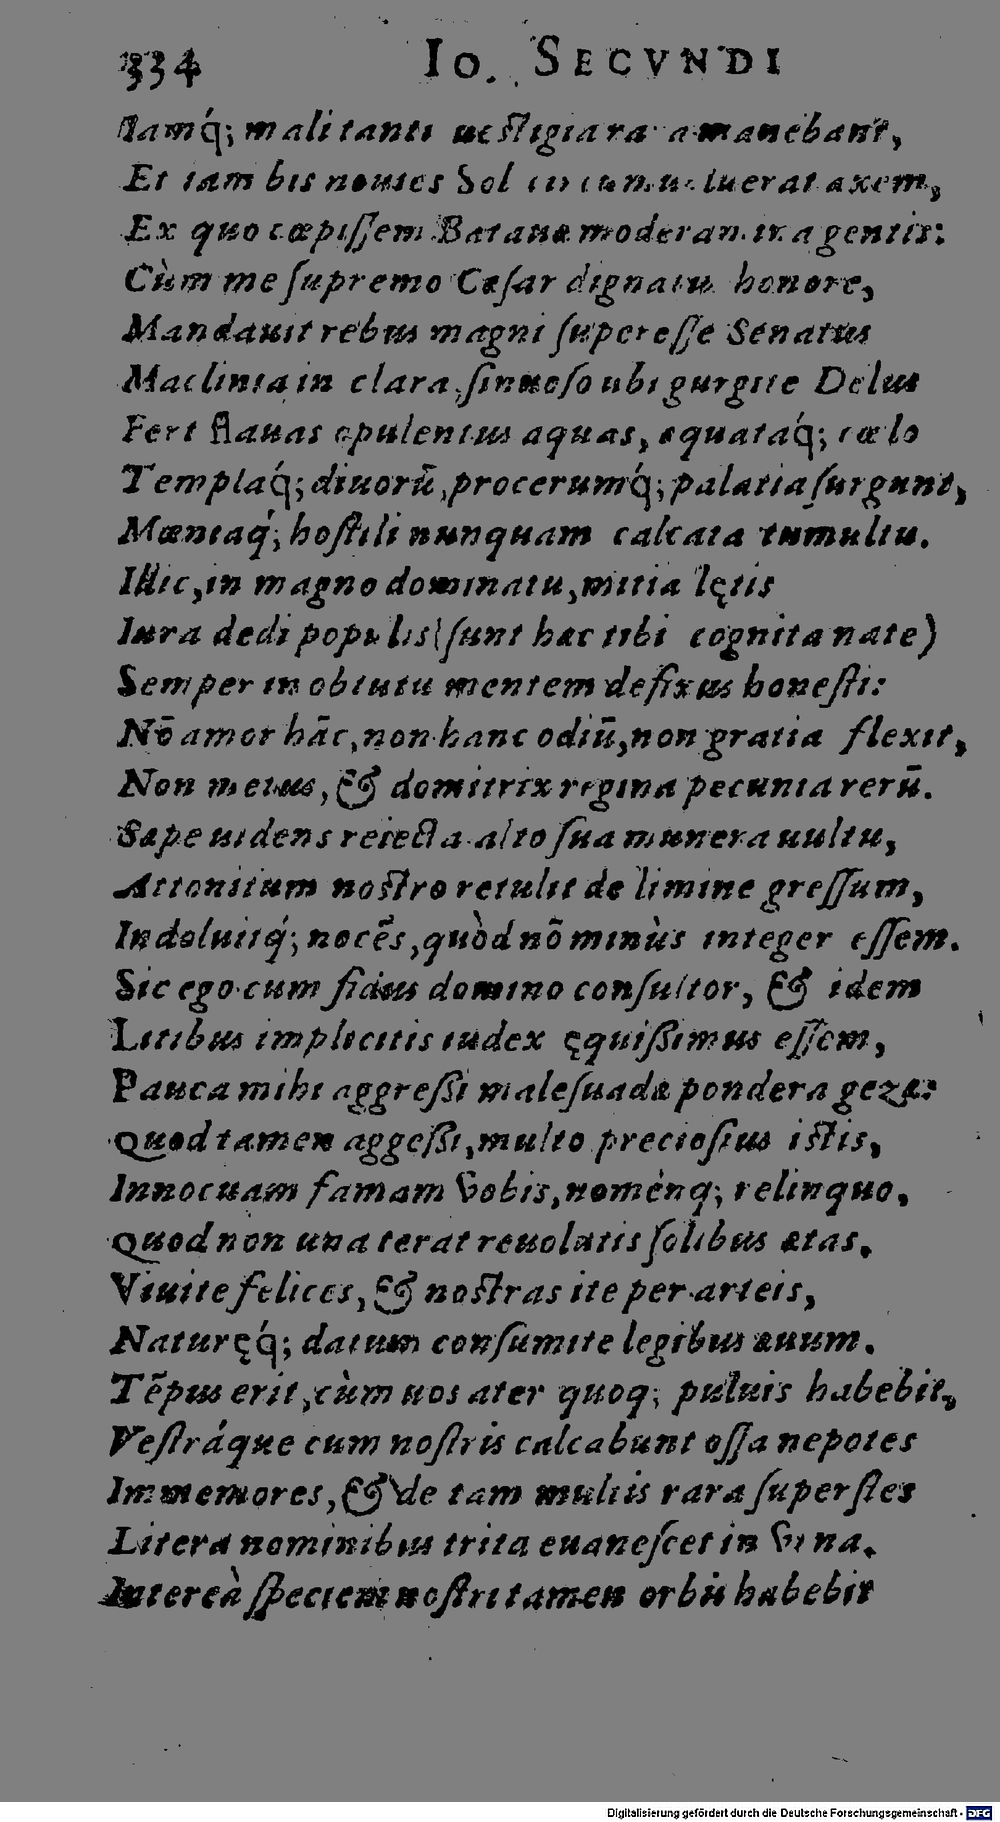 334 IO. SECVNDI
Iamq́; mali tanti ueſtigia rara manebant,
Et iam bis nouies Sol circumuoluerat axem,
Ex quo cœpiſſem Batauæ moderamina gentis:
Cùm me ſupremo Cæſar dignatus honore,
Mandauit rebus magni ſupereſſe Senatus
Maclinia in clara, ſinuoſo ubi gurgite Delus
Fert flauas opulentus aquas, æquataq́; cœlo
Templaq́; diuorū, procerumq́; palatia ſurgunt,
Mœniaq́; hoſtili nunquam calcata tumultu.
Illic, in magno dominatu, mitia lętis
Iura dedi populis (ſunt hæc tibi cognita nate)
Semper in obtutu mentem defixus honeſti:
Nō amor hāc, non hanc odiū, non gratia flexit,
Non metus, & domitrix regina pecunia rerū.
Sæpe uidens reiecta alto ſua munera uultu,
Attonitum noſtro retulit de limine greſſum,
Indoluitq́; nocēs, quòd nō minùs integer eſſem.
Sic ego cum fidus domino conſultor, & idem
Litibus implicitis iudex ęquißimus eſſem,
Pauca mihi aggreßi maleſuadæ pondera gezæ:
Quod tamen aggeßi, multo precioſius iſtis,
Innocuam famam vobis, noménq; relinquo,
Quod non una terat reuolutis ſolibus ætas.
Viuite felices, & noſtras ite per arteis,
Naturęq́; datum conſumite legibus æuum.
Tēpus erit, cùm uos ater quoq; puluis habebit,
Veſtráque cum noſtris calcabunt oſſa nepotes
Immemores, & de tam multis rara ſuperſtes
Litera nominibus trita euaneſcet in vrna.
Intereà ſpeciem noſtri tamen orbis habebit
Digitalisierung gefördert durch die Deutsche Forschungsgemeinschaft - DFG